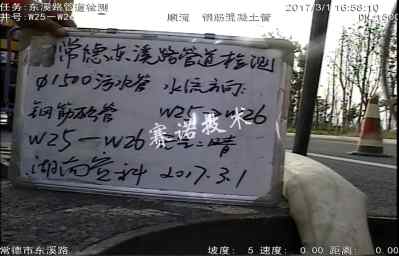 任务:东溪路管道检测 2017/3/1 16:58:10
井号:W25-W26 顺流 钢筋混凝土管 DN:1500
常德东溪路管道检测
φ1500污水管 水流方向:
钢筋砼管 W25→W26
W25—W26
赛诺技术
湖南 科 2017.3.1
常德市东溪路 坡度: 5 速度: 0.00 距离: 0.00